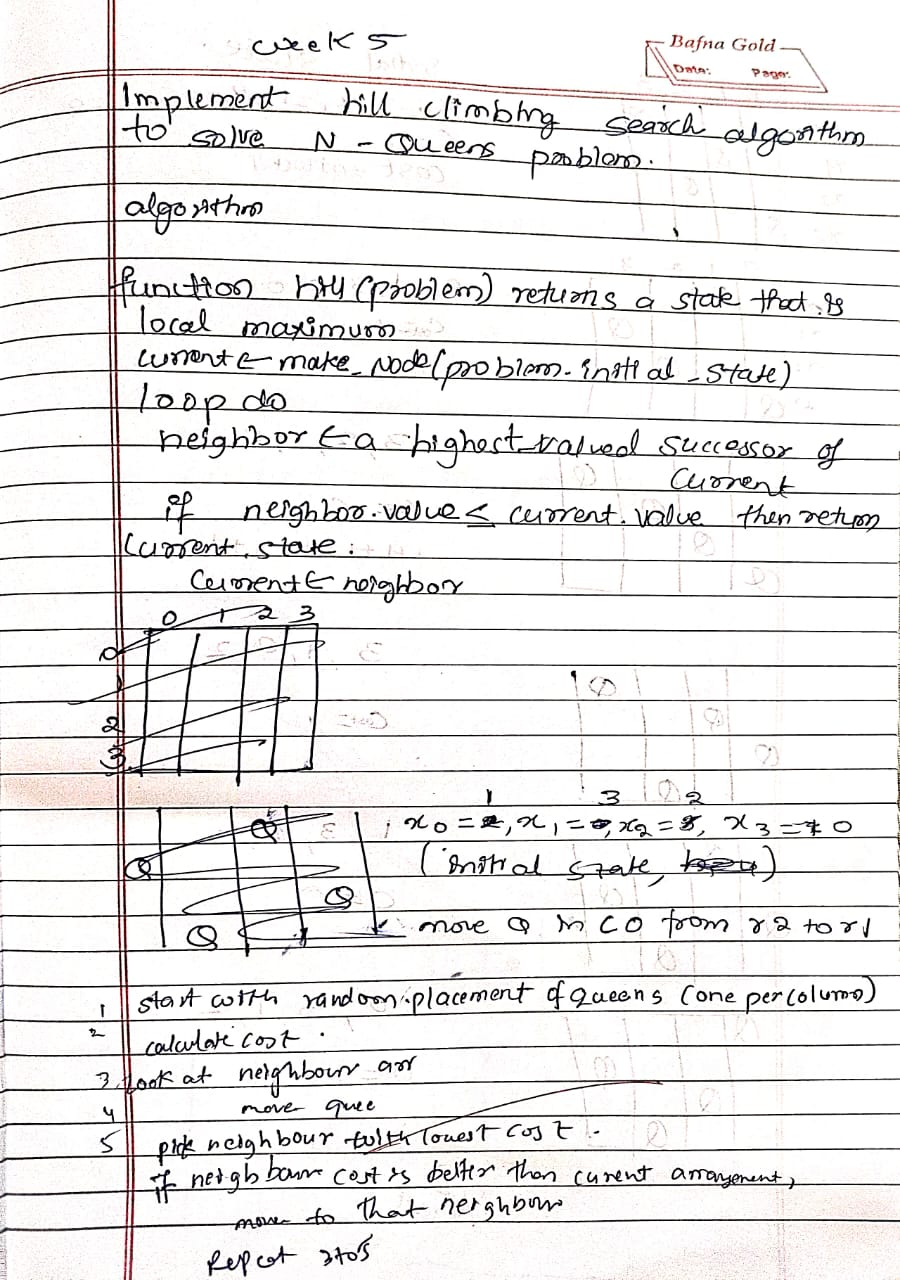 week 5
Bafna Gold
Date: Page:
Implement hill climbing search algorithm
to solve N - Queens problem.
algorithm
function hill (problem) returns a state that is
local maximum
current ← make_Node(problem.initial_state)
loop do
neighbor ← a highest valued successor of
current
if neighbor.value ≤ current.value then return
current.state;
current ← neighbor
0 1 2 3
0
1
2
3
1 3 2
x0 = , x1 = , x2 = , x3 = 0
Q
Q
(initial state, )
Q
Q
move Q in C0 from r2 to r1
1 start with random placement of queens (one per column)
2 calculate cost.
3. look at neighbour arr
4 move quee
5 pick neighbour with lowest cost.
if neighbour cost is better than curent arrangement,
move to that neighbour
Repeat 3to5